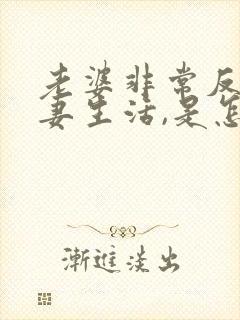 老婆非常反
妻生活,是怎
漸進淡出